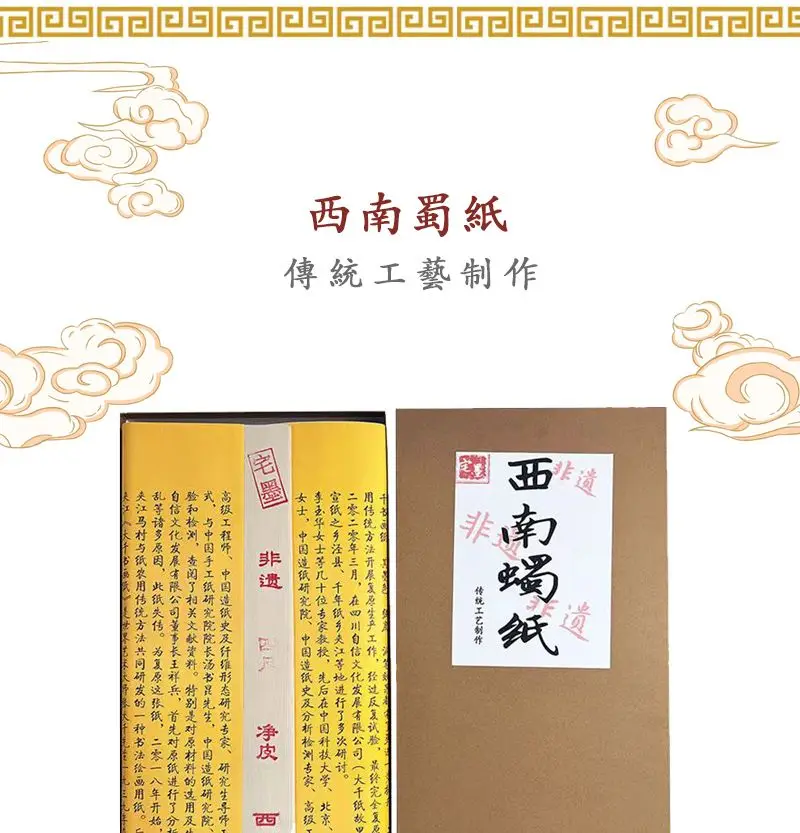 西南蜀紙
傳統工藝制作
用传统方法开展复原生产工作。经过反复试验，最终完全复
二零二零年三月，在四川自信文化发展有限公司（大千纸故
宣纸之乡泾县、千年纸乡夹江等地进行了多次研讨。
李玉华女士等几十位专家教授，先后在中国科技大学、北京、
女士，中国造纸研究院、中国造纸史及分析检测专家、高级工
宅墨
非遗
净皮
西
高级工程师、中国造纸史及纤维形态研究专家、研究生导师
式，与中国手工纸研究院院长汤书昆先生，中国造纸研究院、
验和检测，查阅了相关文献资料。特别是对原材料的选用及生
自信文化发展有限公司董事长王祥兵，首先对原纸进行了分
乱等诸多原因，此纸失传。为复原这张纸，二零一八年开始，
夹江马村与纸农用传统方法共同研发的一种书法绘画用纸。后
西南蠋纸
传统工艺制作
非遗
非遗
非遗